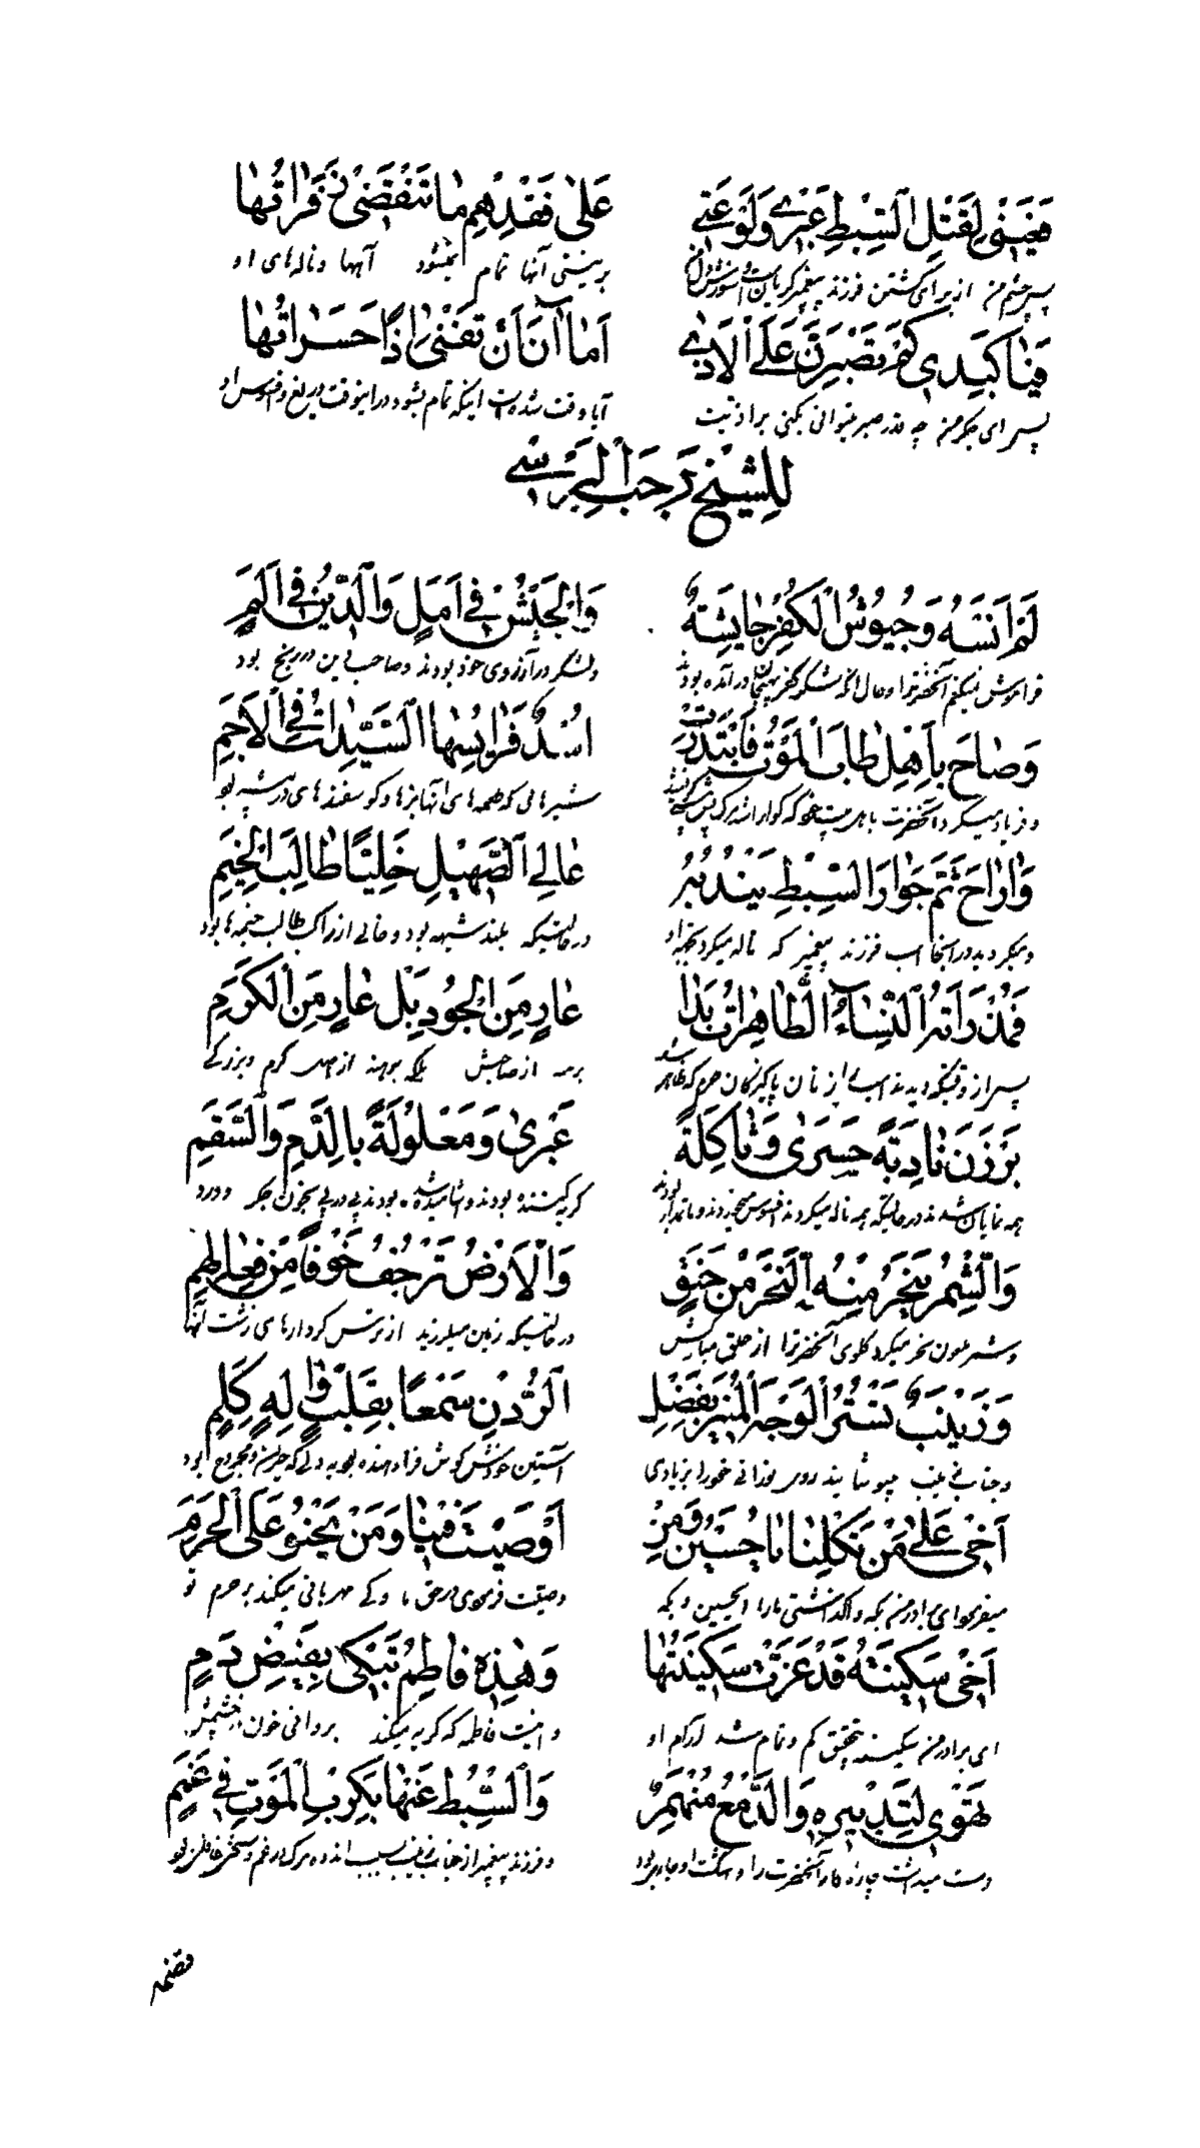 فَعَيْنِي لِقَتْلِ السِّبْطِ عَبْرىٰ وَلَوْعَتي عَلىٰ فَقْدِهِمْ مٰا تَنْقَضي زَفَرٰاتُهٰا
پس چشم من از برای کشتن فرزند پیغمبر گریان است و سوزش دل من بر نیستی آنها تمام نمیشود آهها و ناله‌های او
فَيٰا كَبِدي كَمْ تَصْبِرينَ عَلَى الْاَذىٰ اَمٰا آنَ اَنْ تَفْنىٰ اِذًا حَسَرٰاتُهٰا
پس ای جگر من چه قدر صبر میتوانی بکنی بر اذیت آیا وقت نشده است اینکه تمام بشود در اینوقت دریغ و افسوس او
لِلشَّيْخِ رَجَبِ الْبُرْسي
لَمْ اَنْسَهُ وَجُيُوشُ الْكُفْرِ جٰايِشَةٌ وَالْجَيْشُ في اَمَلٍ وَالدّينُ في اَلَمٍ
فراموش نمیکنم آنحضرترا و حال آنکه لشکر کفر بهیجان درآمده بودند و لشکر در آرزوی خود بودند و صاحب دین در رنج بود
وَصٰاحَ يٰا اَهْلُ طٰابَ الْمَوْتُ فَابْتَدَرَتْ اُسْدٌ فَرٰايِسُهٰا السَّيِّدٰاتُ في الْاَجَمِ
و فریاد میکرد آنحضرت باهل بیت خود که گوارا شد مرگ شیرانی که طعمه‌های آنها بزها و گوسفندهای در بیشه بود
وَارٰاحَ ثَمَّ جَوٰادُ السِّبْطِ يَنْدُبُهُ عٰالِي الصَّهيلِ خَلِيًّا طٰالِبَ الْخِيَمِ
و میگردید در آنجا اسب فرزند پیغمبر که ناله میکرد بجهة او در حالتیکه بلند شیهه بود و خالی از راکب طالب خیمه‌ها بود
فَمُذْ رَأَتْهُ النِّسٰاءُ الطّٰاهِرٰاتُ بَدٰا عٰارٍ مِنَ الْجُودِ بَلْ عٰارٍ مِنَ الْكَرَمِ
پس از وقتیکه دیدند اسب را زنان پاکیزگان حرم که ظاهر شد برهنه از صاحبش بلکه برهنه از صاحب کرم و بزرگی
بَرَزْنَ نٰادِبَةً حَسْرىٰ وَثٰاكِلَةً عَبْرىٰ وَمَعْلُولَةً بِالدَّمِ وَالسَّقَمِ
همه نمایان شدند در حالتیکه همه ناله میکردند افسوس میخوردند و مادر بودند گریه کننده بودند و پی در پی بخون جگر و درد
وَالشِّمْرُ يَنْحَرُ مِنْهُ النَّحْرَ مِنْ حَنَقٍ وَالْاَرْضُ تَرْجُفُ خَوْفًا مِنْ فِعٰالِهِمِ
و شمر ملعون نحر میکرد گلوی آنحضرترا از حلق مبارکش در حالتیکه زمین میلرزید از ترس کردارهای زشت آنها
وَزَيْنَبٌ تَسْتُرُ الْوَجْهَ الْمُنيرَ بِفَضْلِ الرُّدْنِ سَمْعًا بِقَلْبٍ وٰالِهٍ كَلِمٍ
و جناب زینب میپوشانید روی نورانی خود را بزیادی آستین خودش گوش فرا دهنده بود به دلی که حیران و مجروح بود
اَخي عَلىٰ مَنْ تَكِلْنٰا يٰا حُسَيْنُ وَمَنْ اَوْصَيْتَ فينٰا وَمَنْ يَحْنُو عَلَى الْحَرَمِ
میفرمود ای برادر من بکه واگذاشتی ما را ای حسین و بکه وصیت فرمودی در حق ما و که مهربانی میکند بر حرم تو
اَخي سَكينَةُ قَدْ عَزَّتْ سَكينَتُهٰا وَهٰذِهِ فٰاطِمٌ تَبْكي بِفَيْضِ دَمٍ
ای برادر من سکینه بتحقیق کم و تمام شد آرام او و اینست فاطمه که گریه میکند بروانی خون از چشمش
تَهْوي لِتَدْبيرِهِ وَالدَّمْعُ مُنْهَمِرٌ وَالسِّبْطُ عَنْهٰا بِكَرْبِ الْمَوْتِ في غَمَمٍ
دست میداشت چاره کار آنحضرت را و اشک او جاری بود و فرزند پیغمبر از جناب زینب بسبب اندوه مرگ در غم و سختی غافل بود